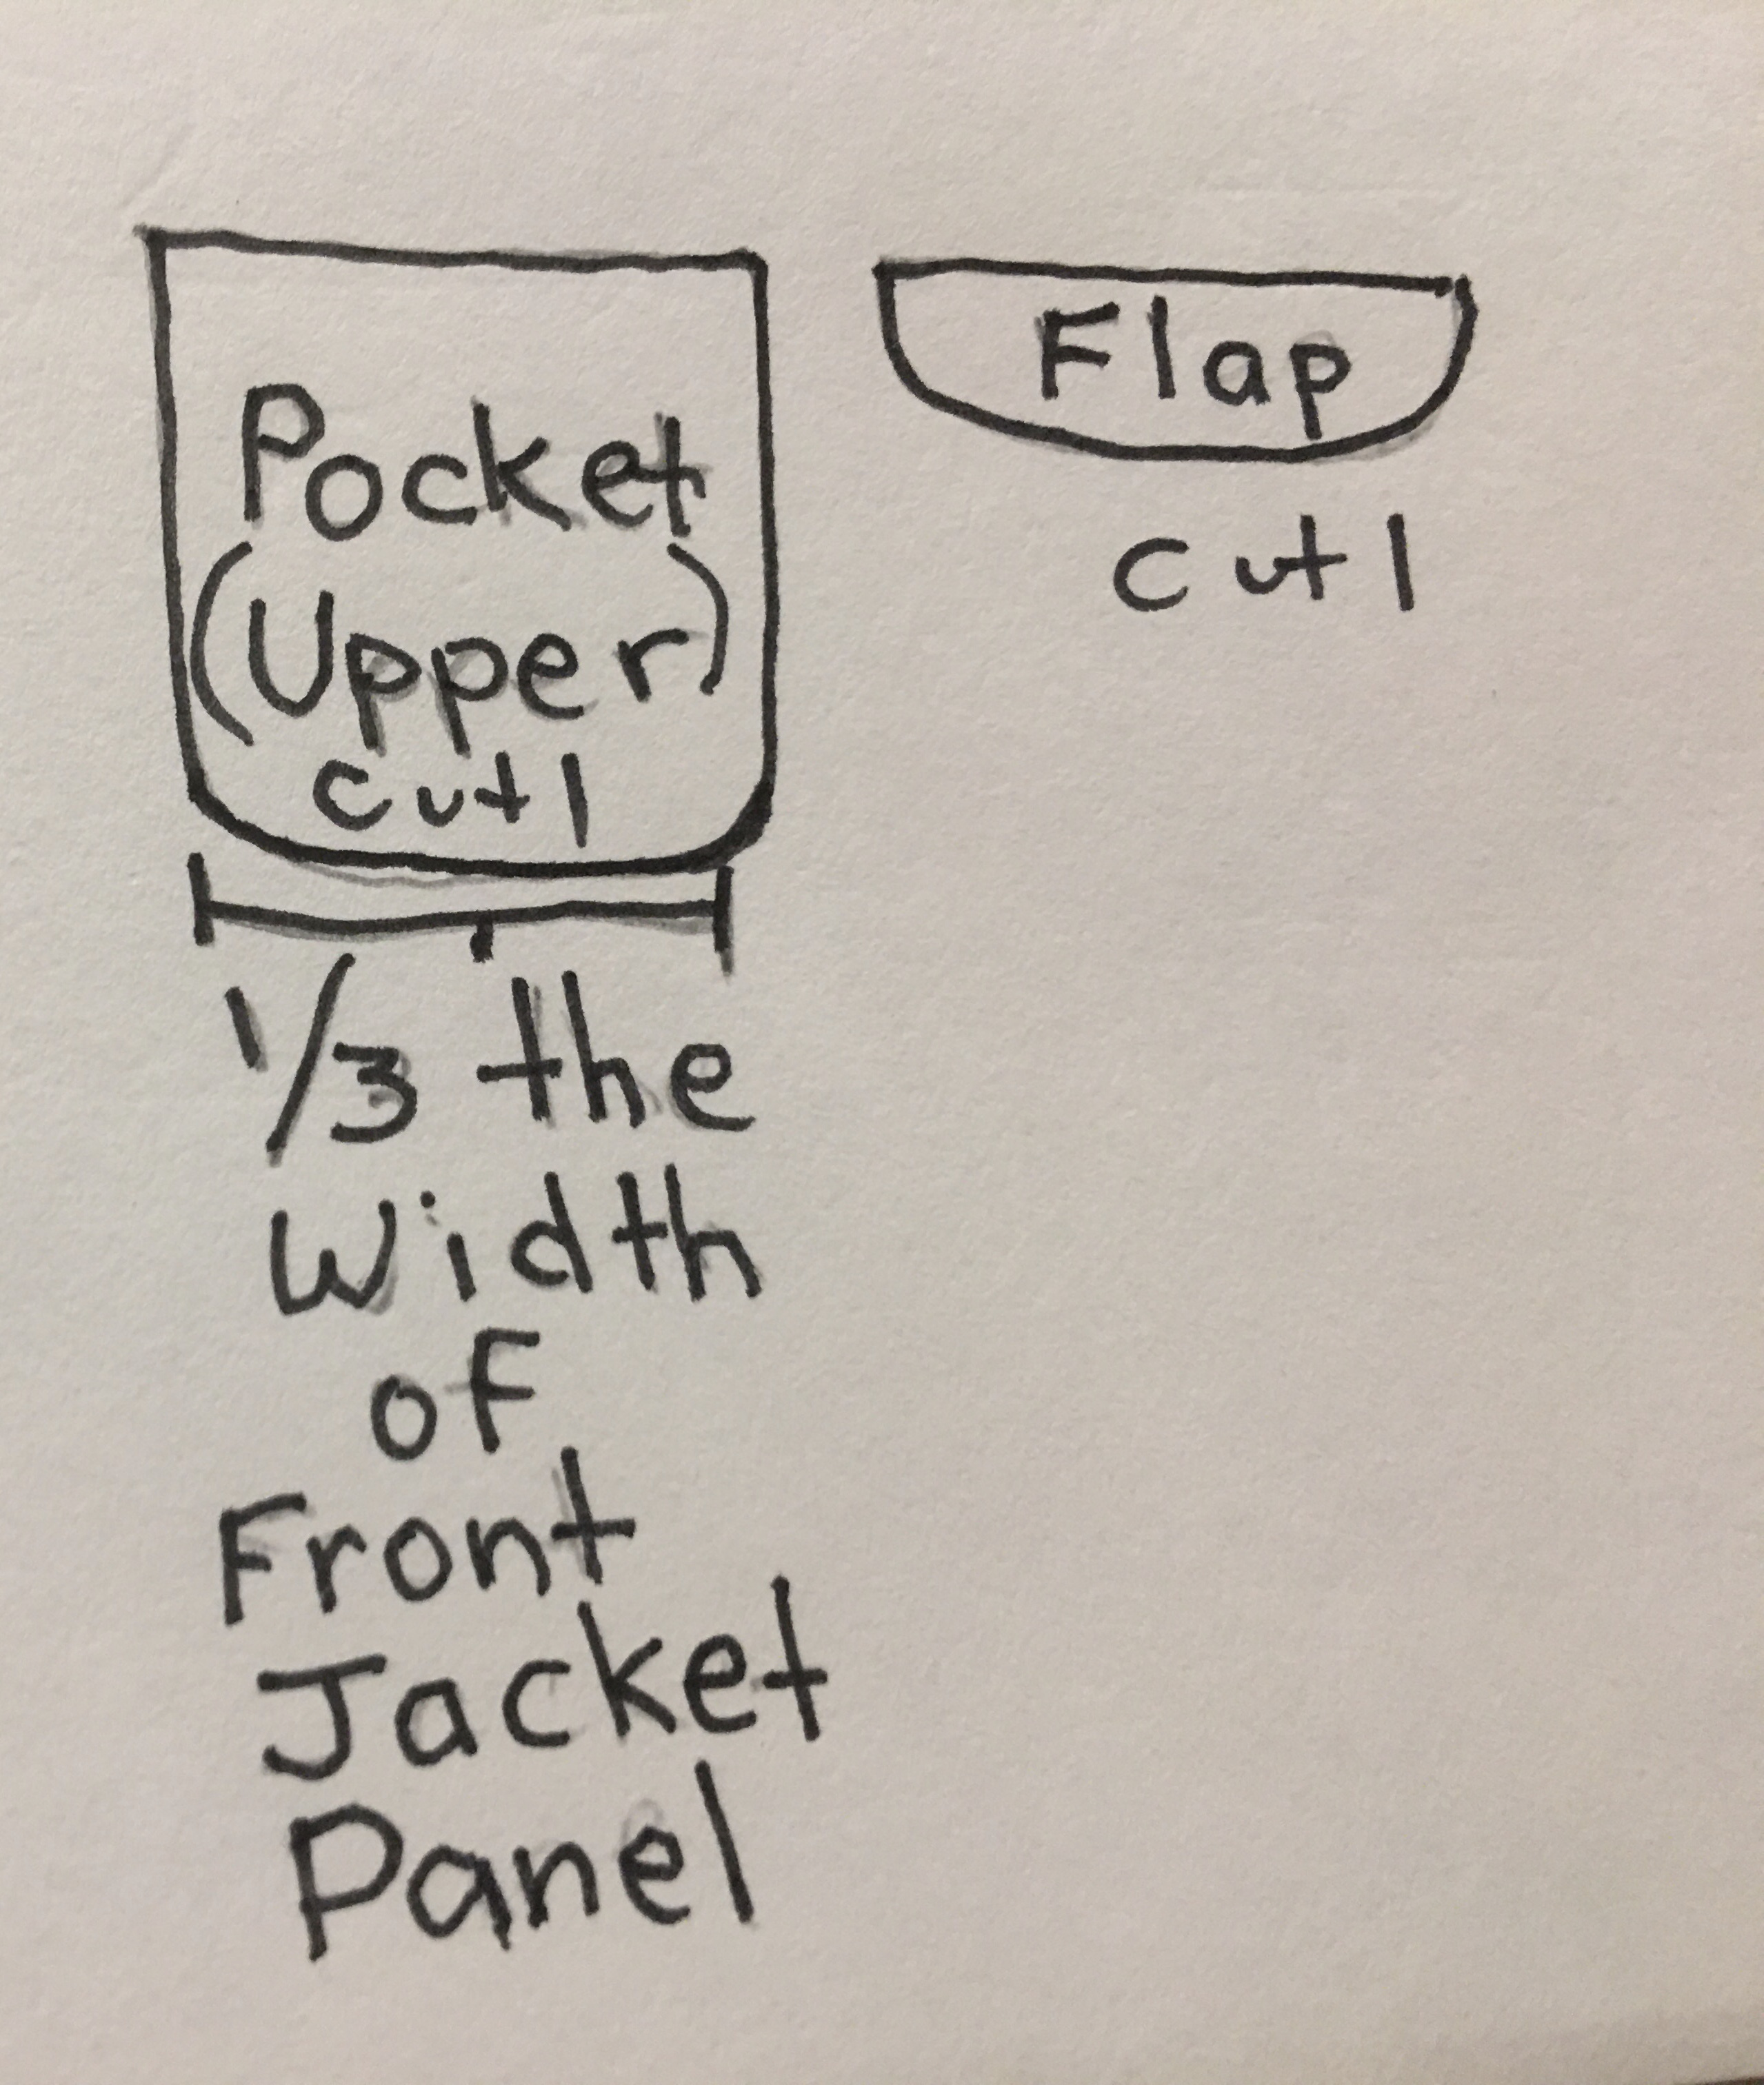 Pocket
(Upper)
cut 1
Flap
cut 1
1/3 the
Width
of
Front
Jacket
Panel